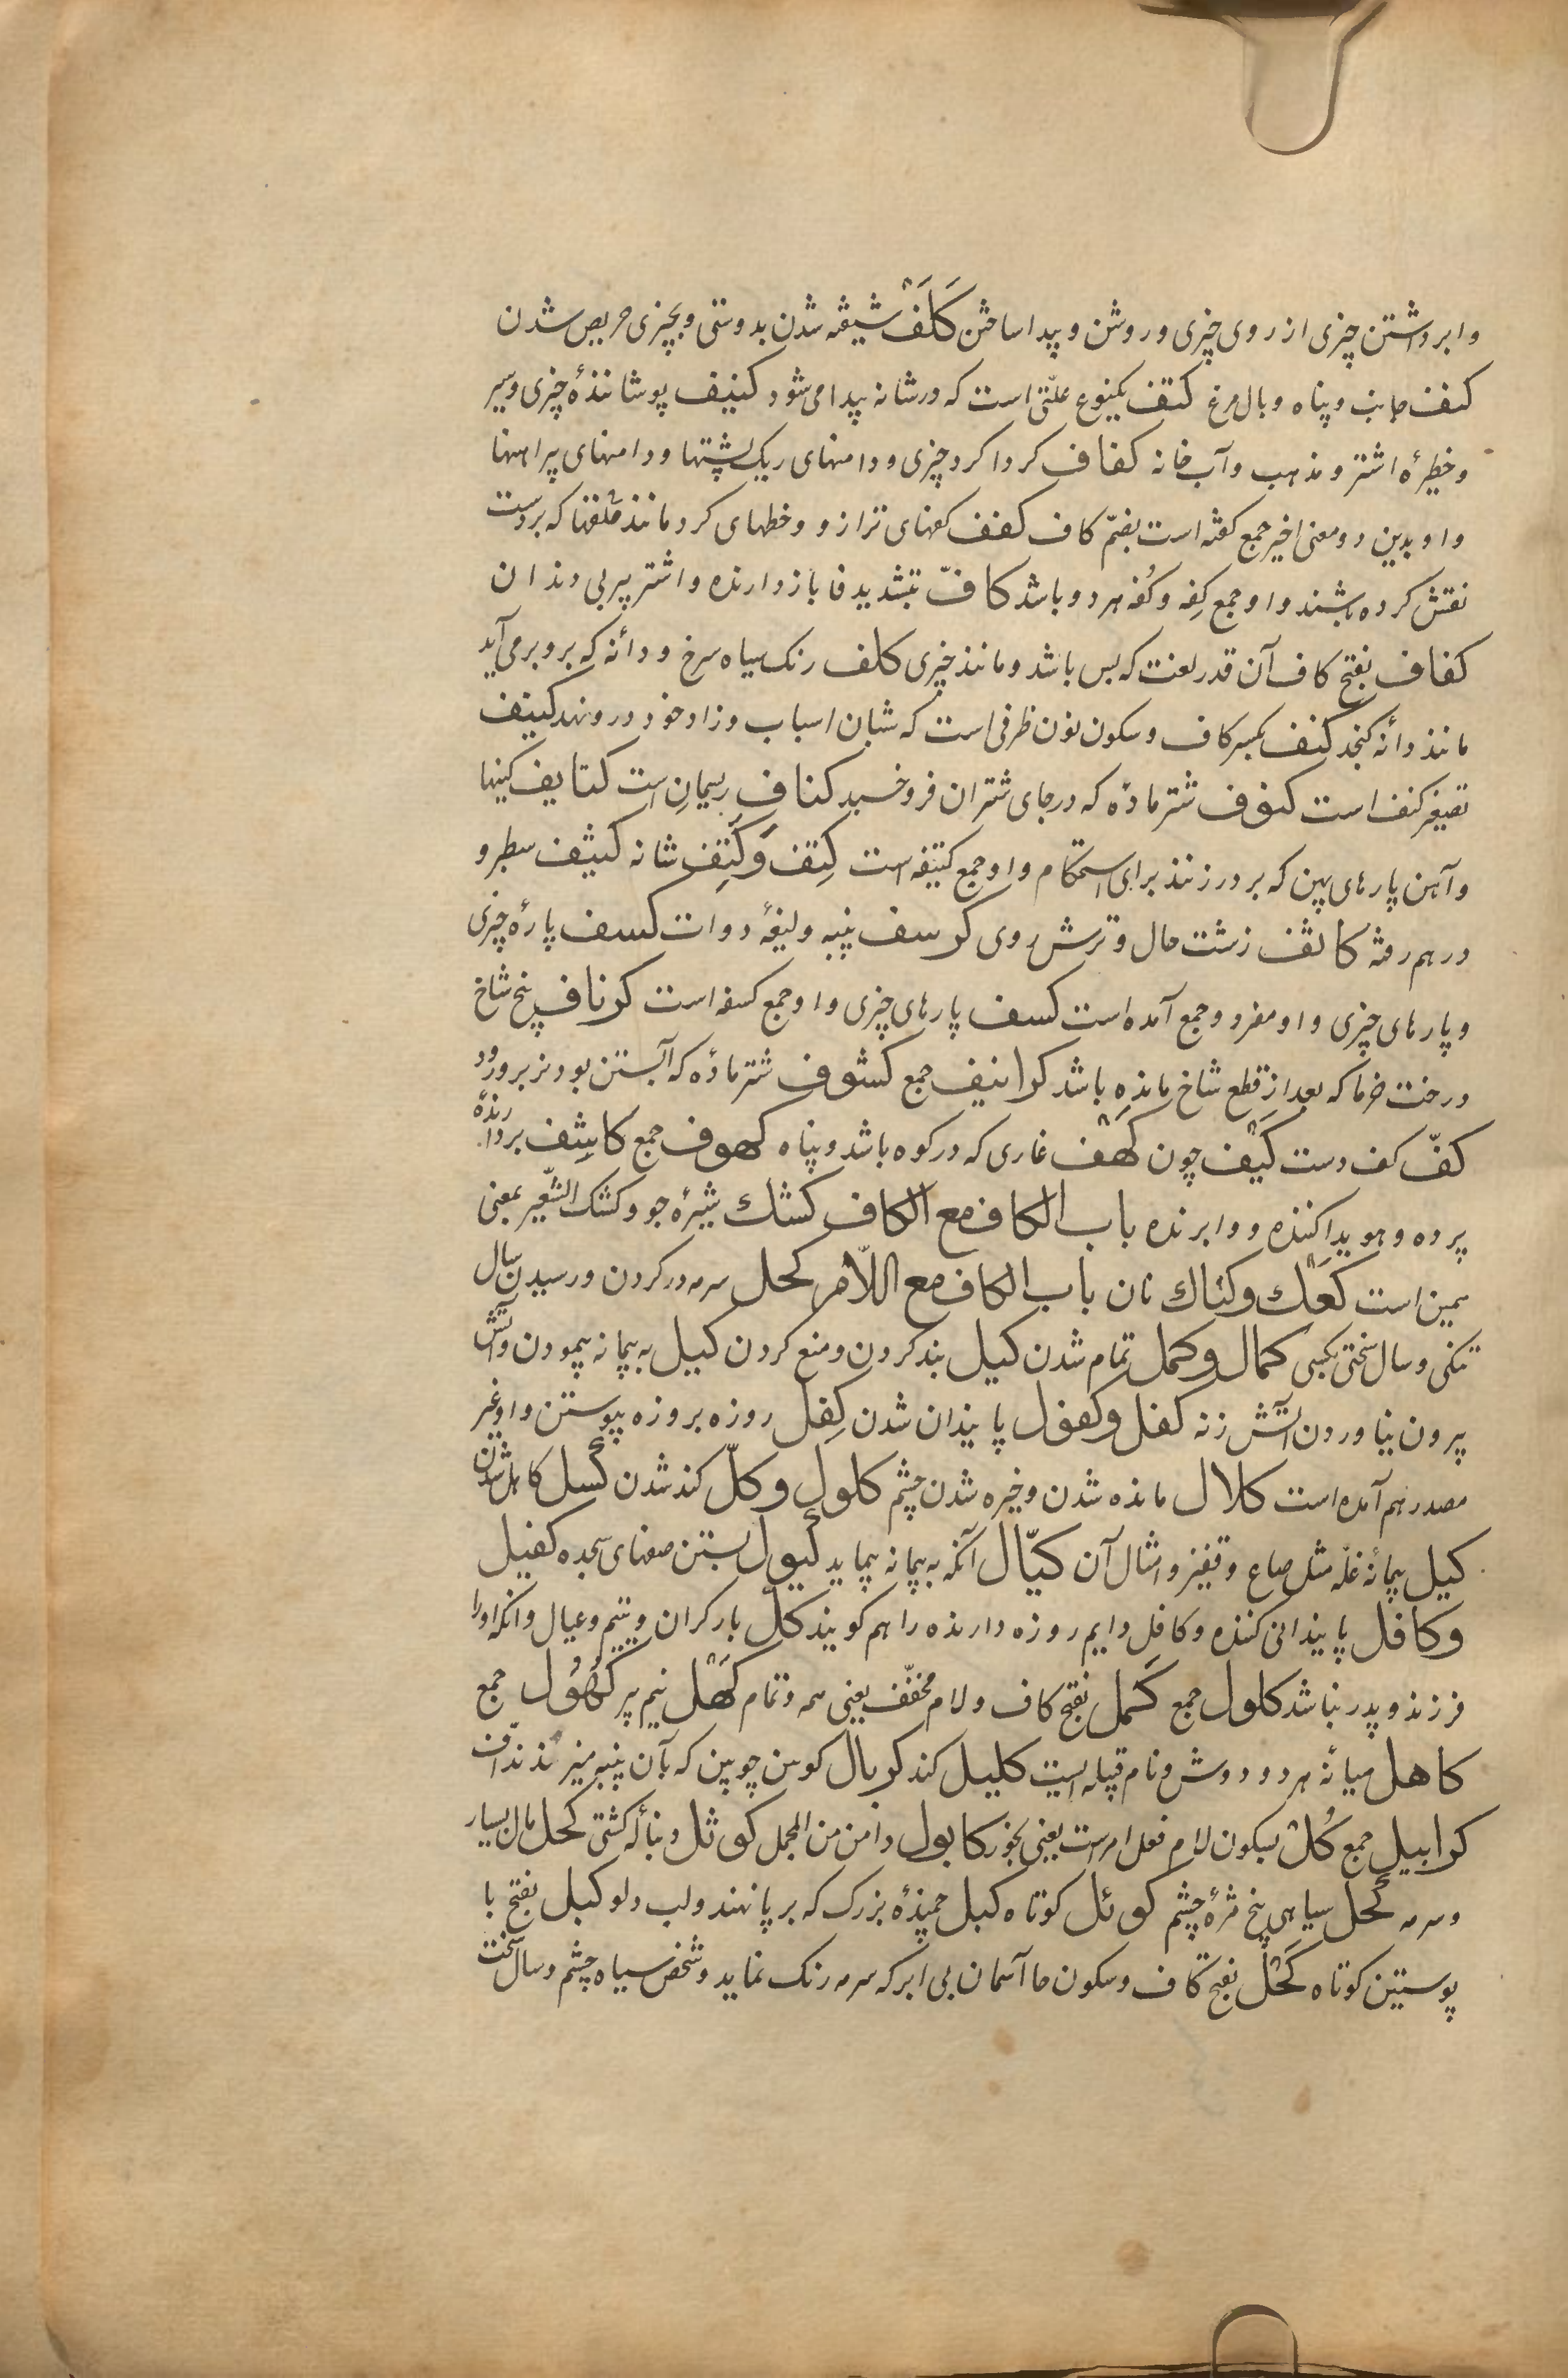 وابرداشتن چیزی از روی چیزی و روشن و پیدا ساختن كَلَفْ شیفته شدن بدوستی و بچیزی حریص شدن
کنف جانب و پناه و بال مرغ کتف یکنوع علّتی است که در شانه پیدا می شود کنیف پوشانندهٔ چیزی و سپر
و خطیرهٔ اشتر و مذهب و آب خانه کفاف کردا کرد چیزی و دامنهای ریک پشتها و دامنهای پیراهنها
و او بدین دو معنی اخیر جمع کفه است بضمّ کاف کفف کفهای ترازو و خطهای کرد مانند حلقها که بر دست
نقش کرده باشند و او جمع کِفه و کُفه هر دو باشد کافّ بتشدید فا بازدارنده و اشتر پیر بی دندان
کفاف بفتح کاف آن قدر لعنت که بس باشد و مانند چیزی کلف رنک سیاه سرخ و دانه که بر رو بر می آید
مانند دانهٔ کنجد کنف بکسر کاف و سکون نون ظرفی است که شبان اسباب و زاد خود درو نهد کنیف
تصغیر کنف است کنوف شتر ماده که در جای شتران فرو خسبد کناف ریسمان است کتایف کینها
و آهن پارهای پهن که بر در زنند برای استحکام و او جمع کتیفه است کِتف وَ کَتِف شانه کثیف سطبر و
در هم رفته کالف زشت حال و ترش روی کرسف پنبه و لیفهٔ دوات کسف پارهٔ چیزی
و پارهای چیزی و او مفرد و جمع آمده است کسف پارهای چیزی و او جمع کسفه است کرناف بیخ شاخ
درخت خرما که بعد از قطع شاخ مانده باشد کرانیف جمع کشوف شتر ماده که آبستن بود و نر برو رود
کفّ کف دست کَیْف چون کَهْف غاری که در کوه باشد و پناه کهوف جمع کاشِف بردارنده
پرده و هویدا کننده و وابرنده باب الکاف مع الکاف کشك شیرهٔ جو و کشک الشّعیر بمعنی
همین است کَعْك و کناك نان باب الکاف مع اللّام کحل سرمه در کردن و رسیدن سال
تنکی و سال سختی بکسی کمال و کمل تمام شدن کبل بند کردن و منع کردن کیل به پیمانه پیمودن و آتش
بیرون نیاوردن آتش زنه کفل و کفول پایندان شدن کِفل روزه بروزه پیوستن و او غیر
مصدر هم آمده است کلال مانده شدن و خیره شدن چشم کلول و کلّ کند شدن کسل کاهل شدن
کیل پیمانهٔ غلّه مثل صاع و قفیز و امثال آن کیّال آنکه به پیمانه پیماید کیول پستن صفهای سجده کفیل
و کافل پایندانی کننده و کافل دایم روزه دارنده را هم کویند کلّ بار کران و یتیم و عیال و آنکه او را
فرزند و پدر نباشد کلول جمع کَمل بفتح کاف و لام مخفّف یعنی همه و تمام کَهْل نیم پیر کُهُول جمع
کاهل میانهٔ هر دو دوش و نام قبیله ایست کلیل کند کربال کوس چوبین که بآن پنبه میزنند ندّاف
کرابیل جمع کُلْ بسکون لام فعل امر است یعنی بخور کابول دامن من المجمل کوثل دنبالهٔ کشتی کحل مال بسیار
و سرمه کحل سیاهی بیخ مژهٔ چشم کوئل کوتاه کبل جمیدهٔ بزرک که بر پا نهند و لب دلو کبل بفتح با
پوستین کوتاه کَحْل بفتح کاف و سکون حا آسمان بی ابر که سرمه رنک نماید و شخص سیاه چشم و سال سخت